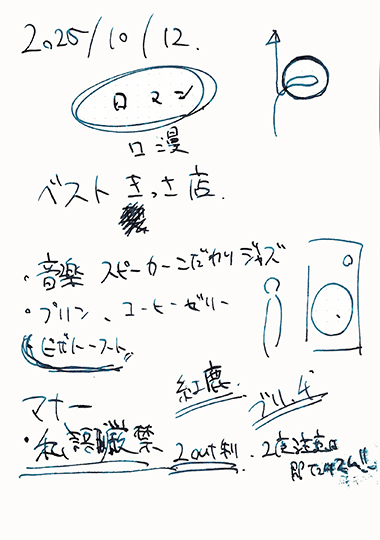 2025/10/12.
ロマン
ロ漫
ベスト きっさ店.
・音楽 スピーカーこだわり ジャズ
・プリン、コーヒーゼリー
マナー
紅鹿
・私語厳禁
2out制. 2度注意は
即